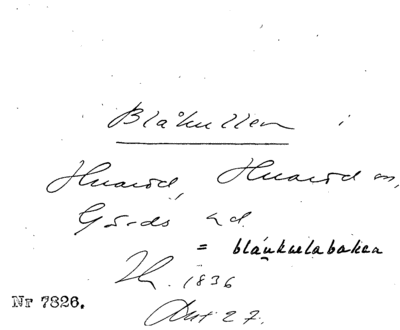 Blåkullen i
Huaröd, Huaröd sn,
Gärds hd.
= blåukulabakka
Th. 1836
Nr 7826.
27.